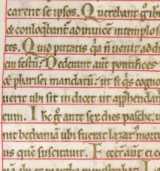 carent se ipsos. Querebant g̃ ih̃
⁊ conloq̃bant̃ ad inuicē in templo st
tes. Quid putatis q̃a ñ uenit ad di
em festū? Dederunt aut̃ pontifices
⁊ pharisei mandatū. ut si q̃s cogno
uerit ubi sit indicet ut app̃hendat
eum. Ih̃c g̃ ante sex dies pasche. ue
nit bethaniā ubi fuerat lazar᷒ mortu
us que suscitauit. Fecer̃ aut̃